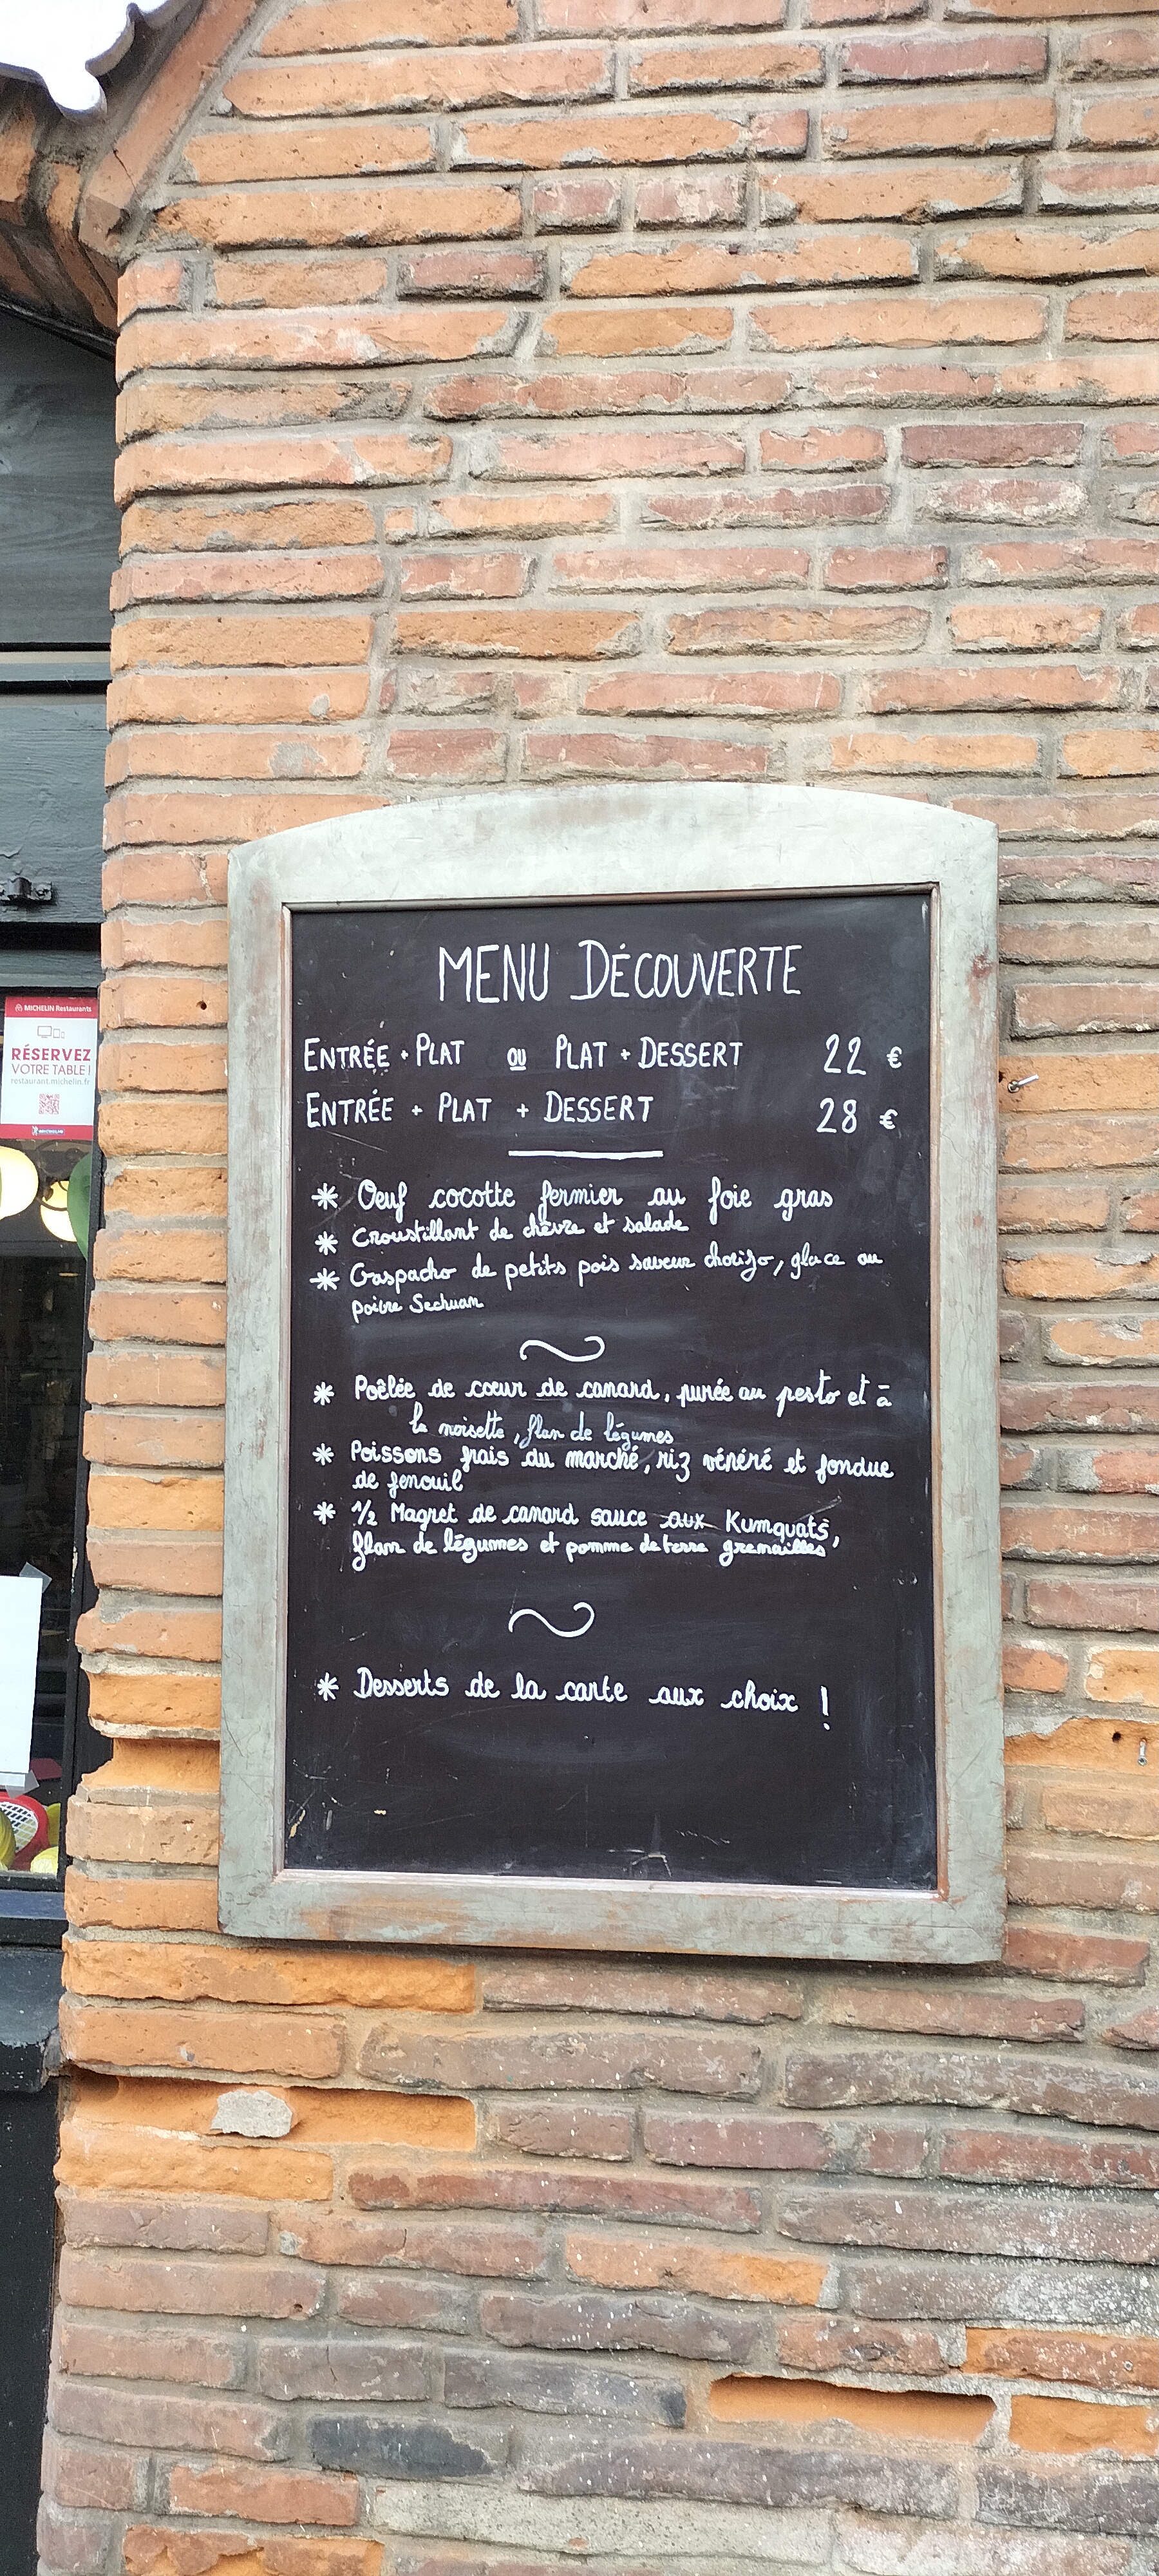 MENU DÉCOUVERTE
ENTRÉE + PLAT OU PLAT + DESSERT 22 €
ENTRÉE + PLAT + DESSERT 28 €
* Oeuf cocotte fermier au foie gras
* Croustillant de chèvre et salade
* Gaspacho de petits pois saveur chorizo, glace au
poivre Sechuan
* Poêlée de coeur de canard, purée au pesto et à
la noisette, flan de légumes
* Poissons frais du marché, riz vénéré et fondue
de fenouil
* 1/2 Magret de canard sauce aux Kumquats,
flan de légumes et pomme de terre grenailles
* Desserts de la carte aux choix !
MICHELIN Restaurants
RÉSERVEZ
VOTRE TABLE !
restaurant.michelin.fr
MICHELIN